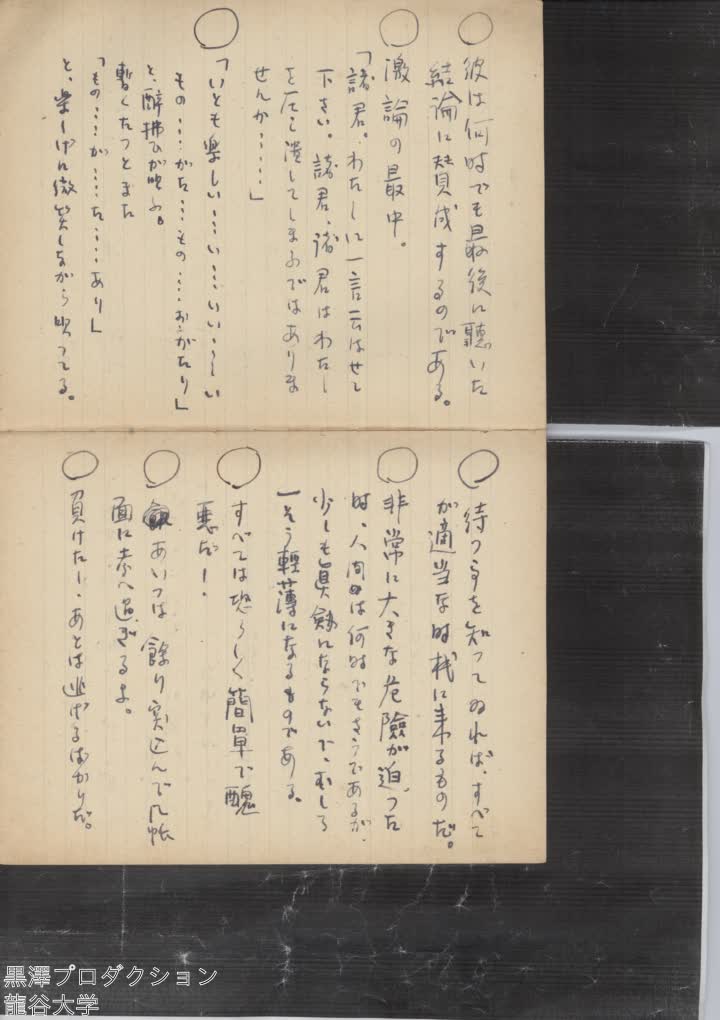 ○彼は何時でも最後に聴いた
結論に賛成するのである。
○激論の最中。
「諸君。わたしに一言云はせて
下さい。諸君、諸君はわたし
を圧し潰してしまふではありま
せんか……」
○「いとも楽しい……い……いい……しい
もの……がた……もの……お・がたり」
と、酔拂ひが唄ふ。
暫くたつとまた
「もの……が……た……あり」
と、楽しげに微笑しながら唄ってる。
○待つ事を知ってゐれば、すべて
が適当な時機に来るものだ。
○非常に大きな危險が迫った
時、人間は何時でもさうであるが、
少しも真剣にならないで、むしろ
一そう輕薄になるものである。
○すべては恐ろしく簡単で醜
悪だー.
○あいつは餘り突込んで几帳
面に考へ過ぎるよ。
○負けたー、あとは逃げるばかりだ。
黒澤プロダクション
龍谷大学